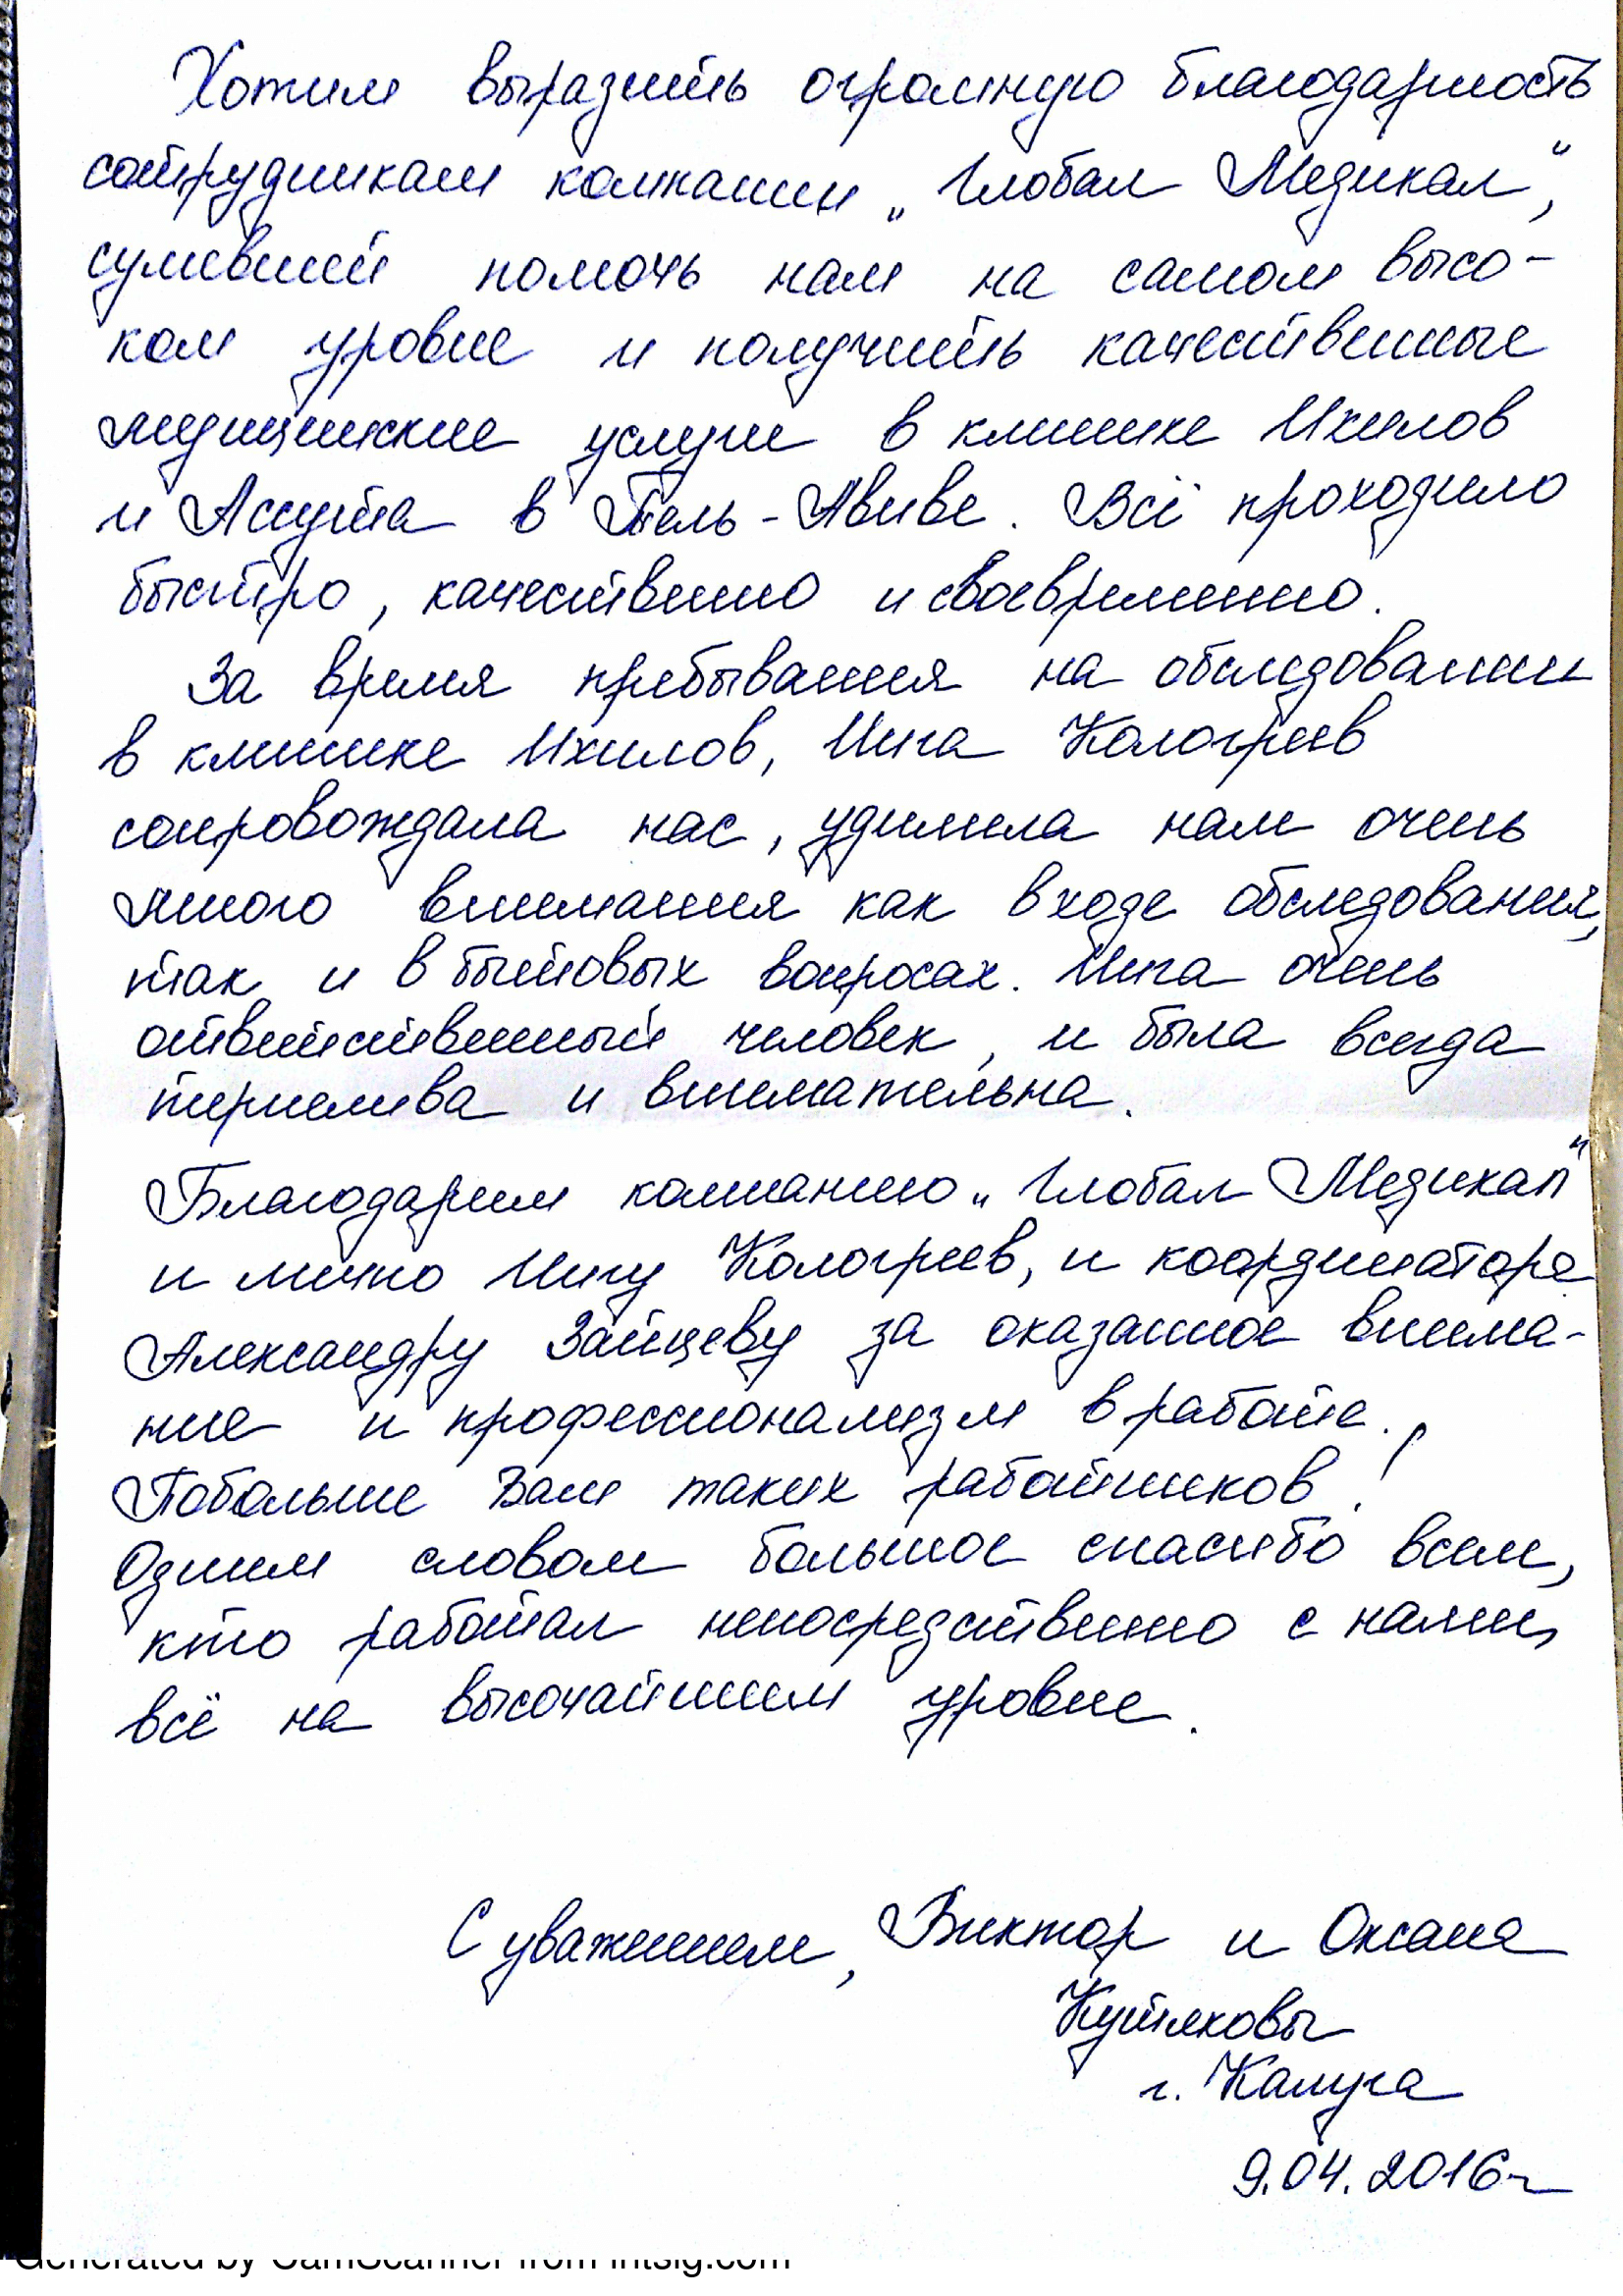 Хотим выразить огромную благодарность
сотрудникам компании „Глобал Медикал",
сумевшей помочь нам на самом высо-
ком уровне и получить качественные
медицинские услуги в клинике Ихилов
и Ассута в Тель-Авиве. Всё проходило
быстро, качественно и своевременно.
За время пребывания на обследовании
в клинике Ихилов, Инга Кологреев
сопровождала нас, уделила нам очень
много внимания как в ходе обследования,
так и в бытовых вопросах. Инга очень
ответственный человек, и была всегда
терпелива и внимательна.
Благодарим компанию „Глобал Медикал"
и лично Ингу Кологреев, и координатора
Александру Зайцеву за оказанное внима-
ние и профессионализм в работе.
Побольше Вам таких работников!
Одним словом большое спасибо всем,
кто работал непосредственно с нами,
всё на высочайшем уровне.
С уважением, Виктор и Оксана
Кутяковы
г. Калуга
9.04.2016г
Generated by CamScanner from intsig.com